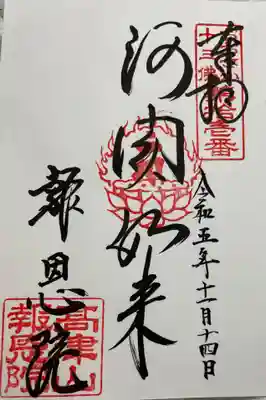 奉拝
拾壱番
十三佛
阿閦如来
令和五年十一月十四日
報恩院
高津山
報恩院